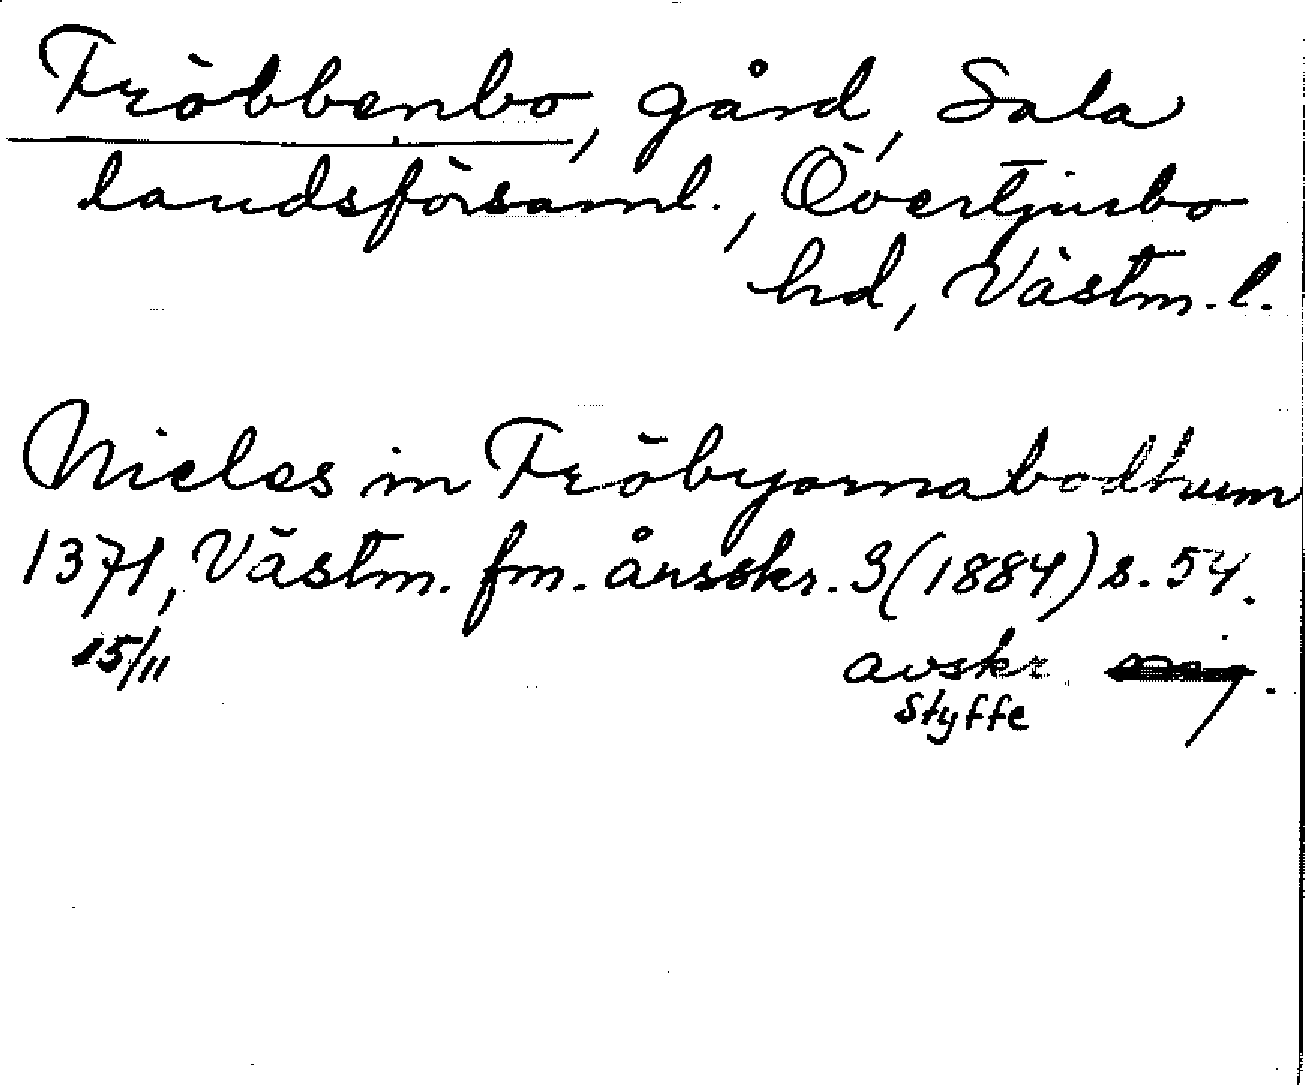 Fröbbenbo, gård, Sala
landsförsaml., Övertjurbo
hd, Västm. l.
Nicles in Fröbyornabodhum
1371, Västm. fm. årsskr. 3 (1884) s. 54.
15/11 avskr.
Styffe